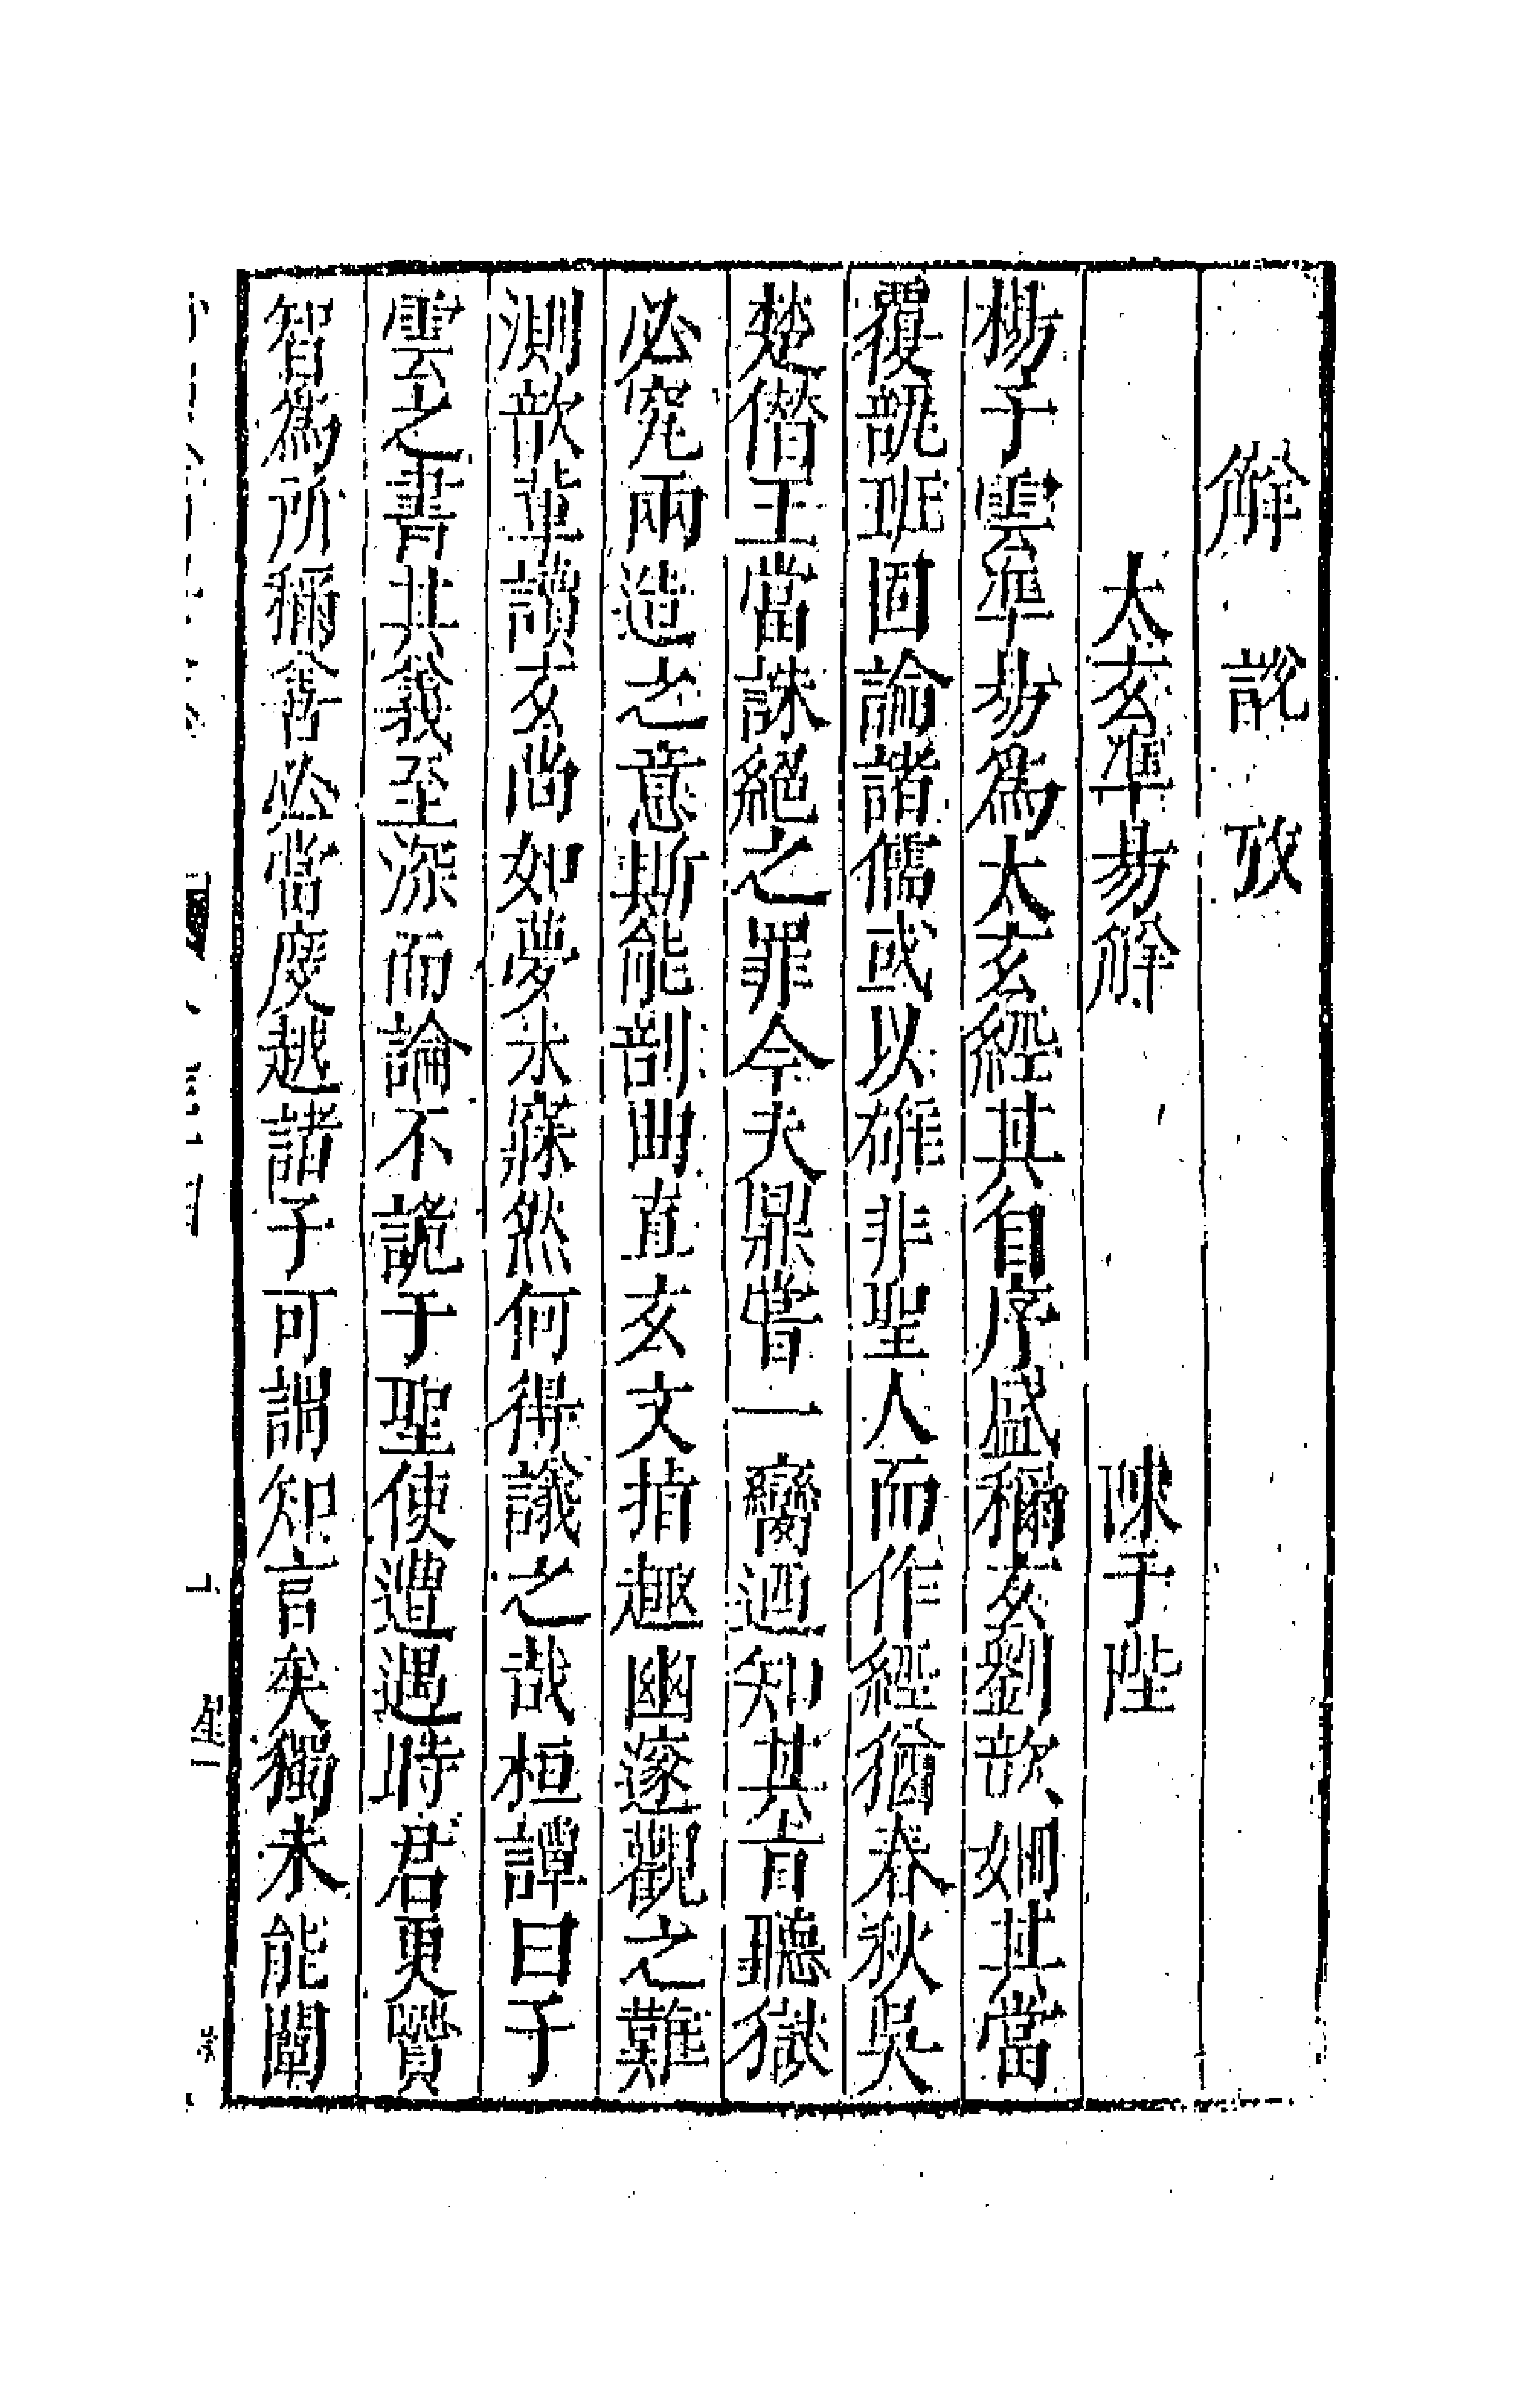 解說攷
太玄準易解 陳于陛
楊子雲準易爲太玄經其自序盛稱玄劉歆姍其當
覆瓿班固論諸儒或以雄非聖人而作經猶春秋吳
楚僭王當誅絕之罪今夫鼎嘗一臠迺知其旨聽獄
必究兩造之意斯能剖曲直玄文指趣幽邃觀之難
測歆輩讀玄尚如夢未寐然何得議之哉桓譚曰子
雲之書其義至深而論不詭于聖使遭遇時君更賢
智爲所稱善必當度越諸子可謂知言矣獨未能闡